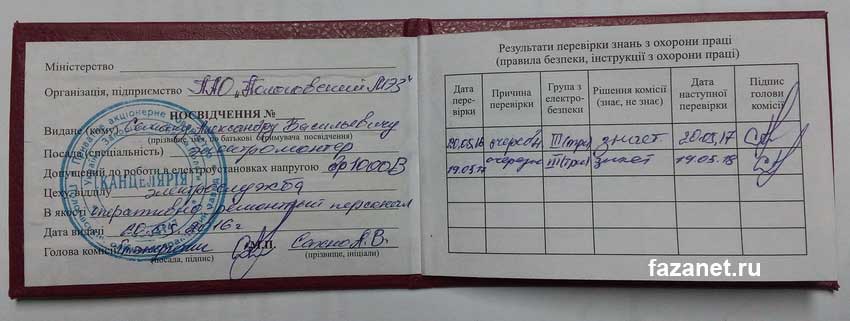 Міністерство
Організація, підприємство ПАО „Пологовский МЭЗ"
ПОСВІДЧЕННЯ №
Видане (кому) Александру Васильевичу
(прізвище, по батькові отримувача посвідчення)
Посада (спеціальність) электромонтер
Допущений до роботи в електроустановках напругою до 1000В
Цеху, відділу электрослужба
В якості оперативно-ремонтный персонал
Дата видачі 20.05.2016г
Голова комісії М.П. Сахно А.В.
(посада, підпис) (прізвище, ініціали)
КАНЦЕЛЯРІЯ
Результати перевірки знань з охорони праці
(правила безпеки, інструкції з охорони праці)
Дата перевірки Причина перевірки Група з електробезпеки Рішення комісії (знає, не знає) Дата наступної перевірки Підпис голови комісії
20.05.16 очередн III (три) знает 20.05.17
19.05.17 очередн III (три) знает 19.05.18
fazanet.ru